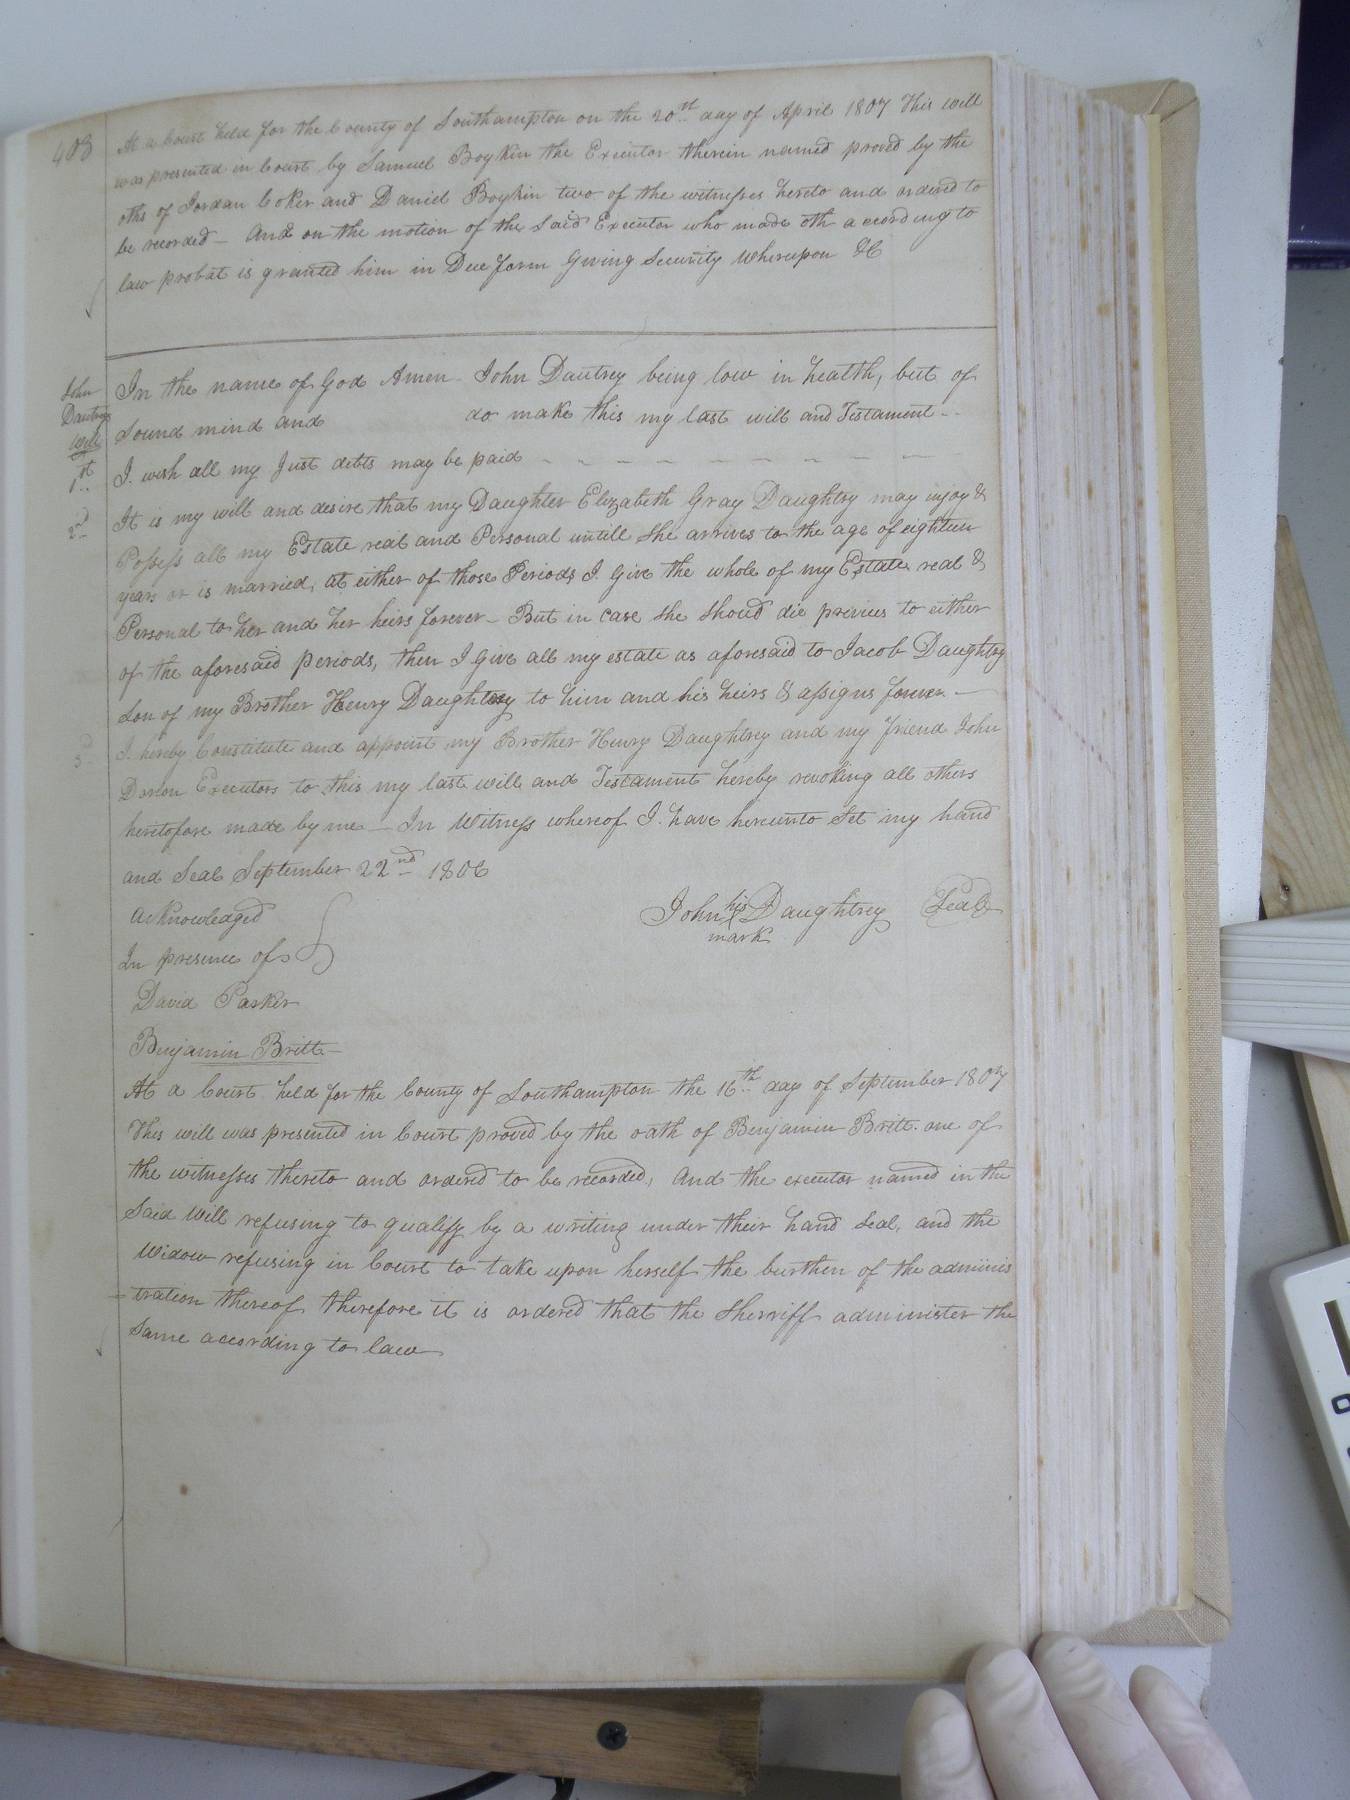 403
At a Court held for the County of Southampton on the 20st day of April 1807 This will
was presented in Court by Samuel Boykin the Executor therein named proved by the
oths of Jordan Coker and Daniel Boykin two of the witnesses hereto and ordered to
be recorded - And on the motion of the said Executor who made oth according to
law probat is granted him in Due form Giving Security Whereupon &C
John
Dautreys
Will
In the name of God Amen - John Dautrey being low in health, but of
Sound mind and do make this my last will and Testament - -
1st I. wish all my Just debts may be paid
2nd It is my will and desire that my Daughter Elizabeth Gray Daughtry may injoy &
Possess all my Estate real and Personal untill she arrives to the age of eighteen
years or is married, at either of those Periods I. Give the whole of my Estate real &
Personal to her and her heirs forever - But in case she shoud die previus to either
of the aforesaid periods, then I give all my estate as aforesaid to Jacob Daughtry
son of my Brother Henry Daughtrey to him and his heirs & assigns forever -
3d I. hereby Constitute and appoint my Brother Henry Daughtrey and my friend John
Executors to this my last will and Testament hereby revoking all others
heretofore made by me - In Witness whereof I. have hereunto Set my hand
and Seal September 22nd 1806
Acknowledged
In presence of
John his Daughtrey Seal
mark
David Parker
Benjamin Britt
At a Court held for the County of Southampton the 16th day of September 1807
This will was presented in Court proved by the oath of Benjamin Britt one of
the witnesses thereto and ordered to be recorded, And the executor named in the
Said Will refusing to qualify by a writing under their hand Seal, and the
Widow refusing in Court to take upon herself the burthen of the adminis
=tration thereof therefore it is ordered that the Sherriff administer the
Same according to law